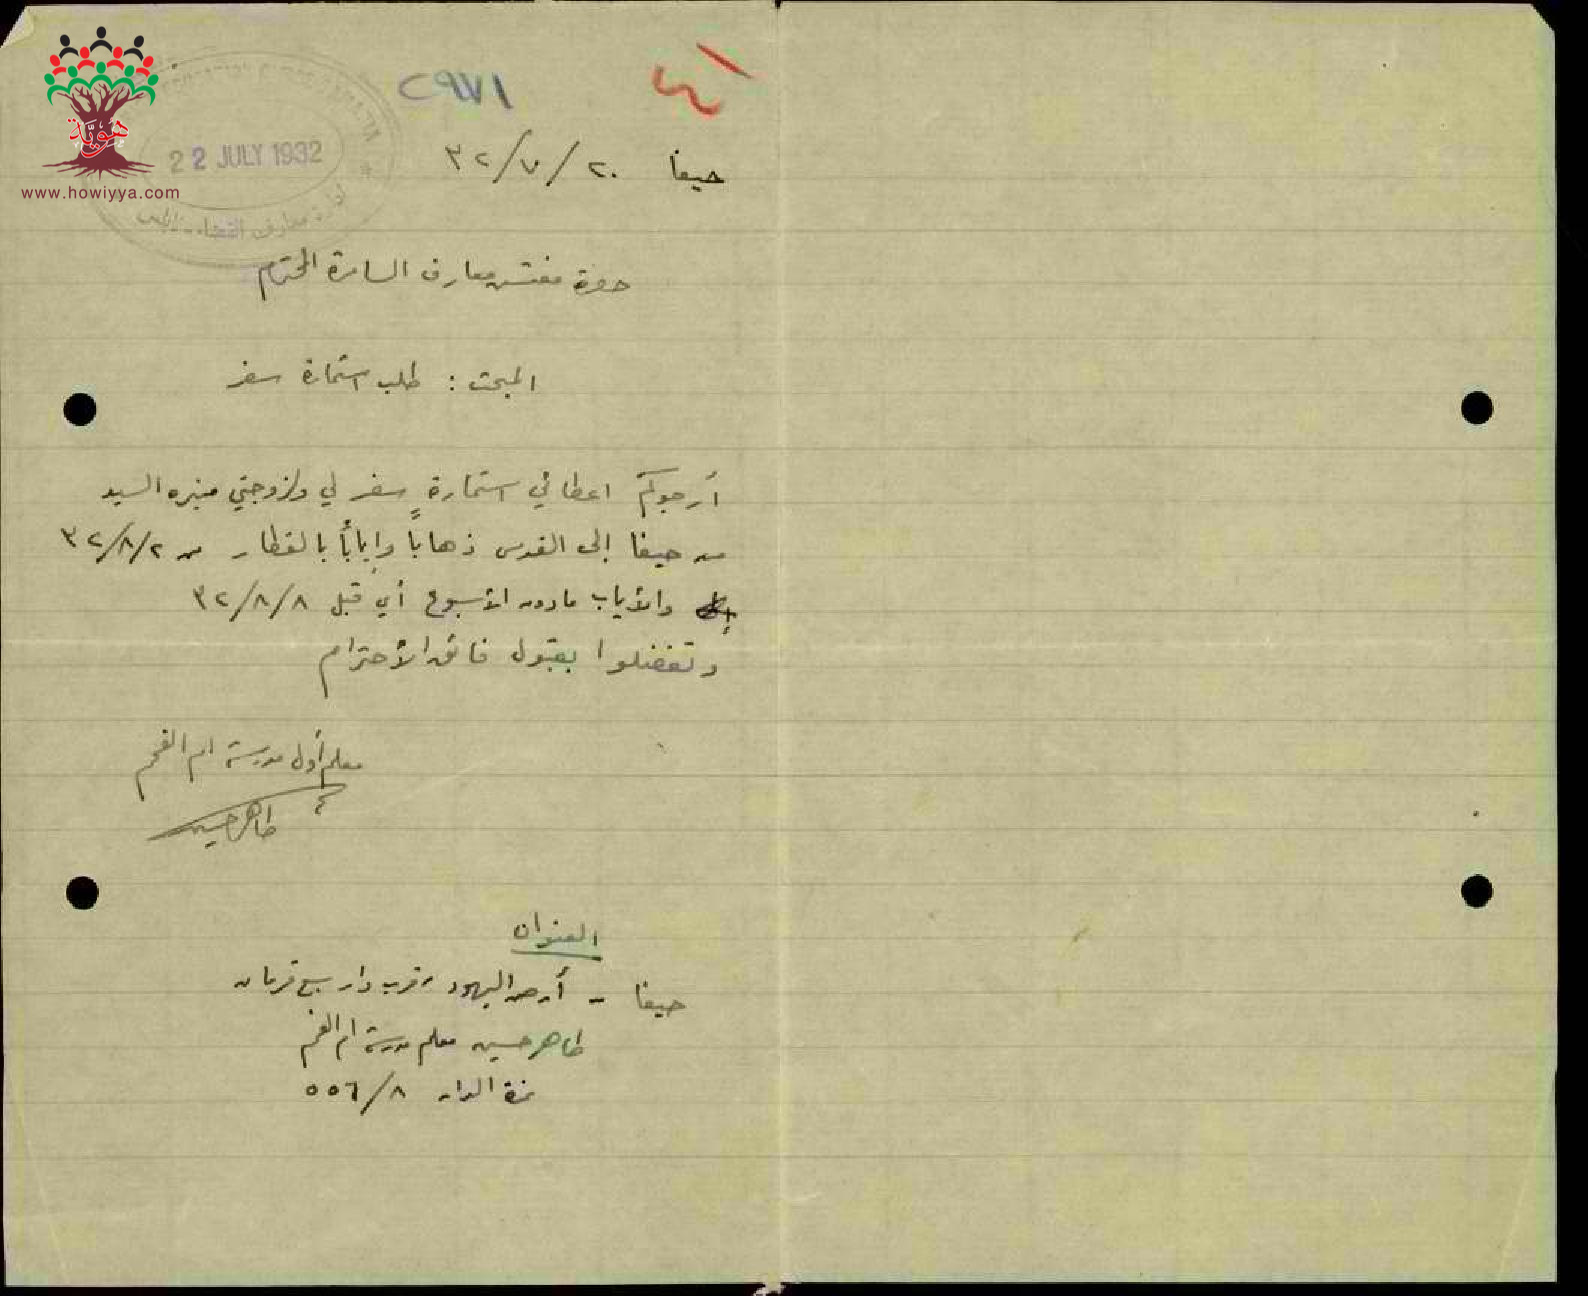 هوية
www.howiyya.com
٢٩٧١
22 JULY 1932
حيفا ٢٠/٧/٣٢
حضرة مفتش معارف السامرة المحترم
المبحث : طلب استمارة سفر
أرجوكم اعطائي استمارةٍ سفر لي ولزوجتي منيره السيد
من حيفا إلى القدس ذهاباً وإياباً بالقطار من ٣٢/٨/٢
والأياب مادون الأسبوع أي قبل ٣٢/٨/٨
وتفضلوا بقبول فائق الأحترام
معلم أول مدرسة ام الفحم
طاهر حسين
العنوان
حيفا - أرض اليهود قرب دار سبع قرمان
طاهر حسين معلم مدرسة ام الفحم
نمرة الدار ٥٥٦/٨